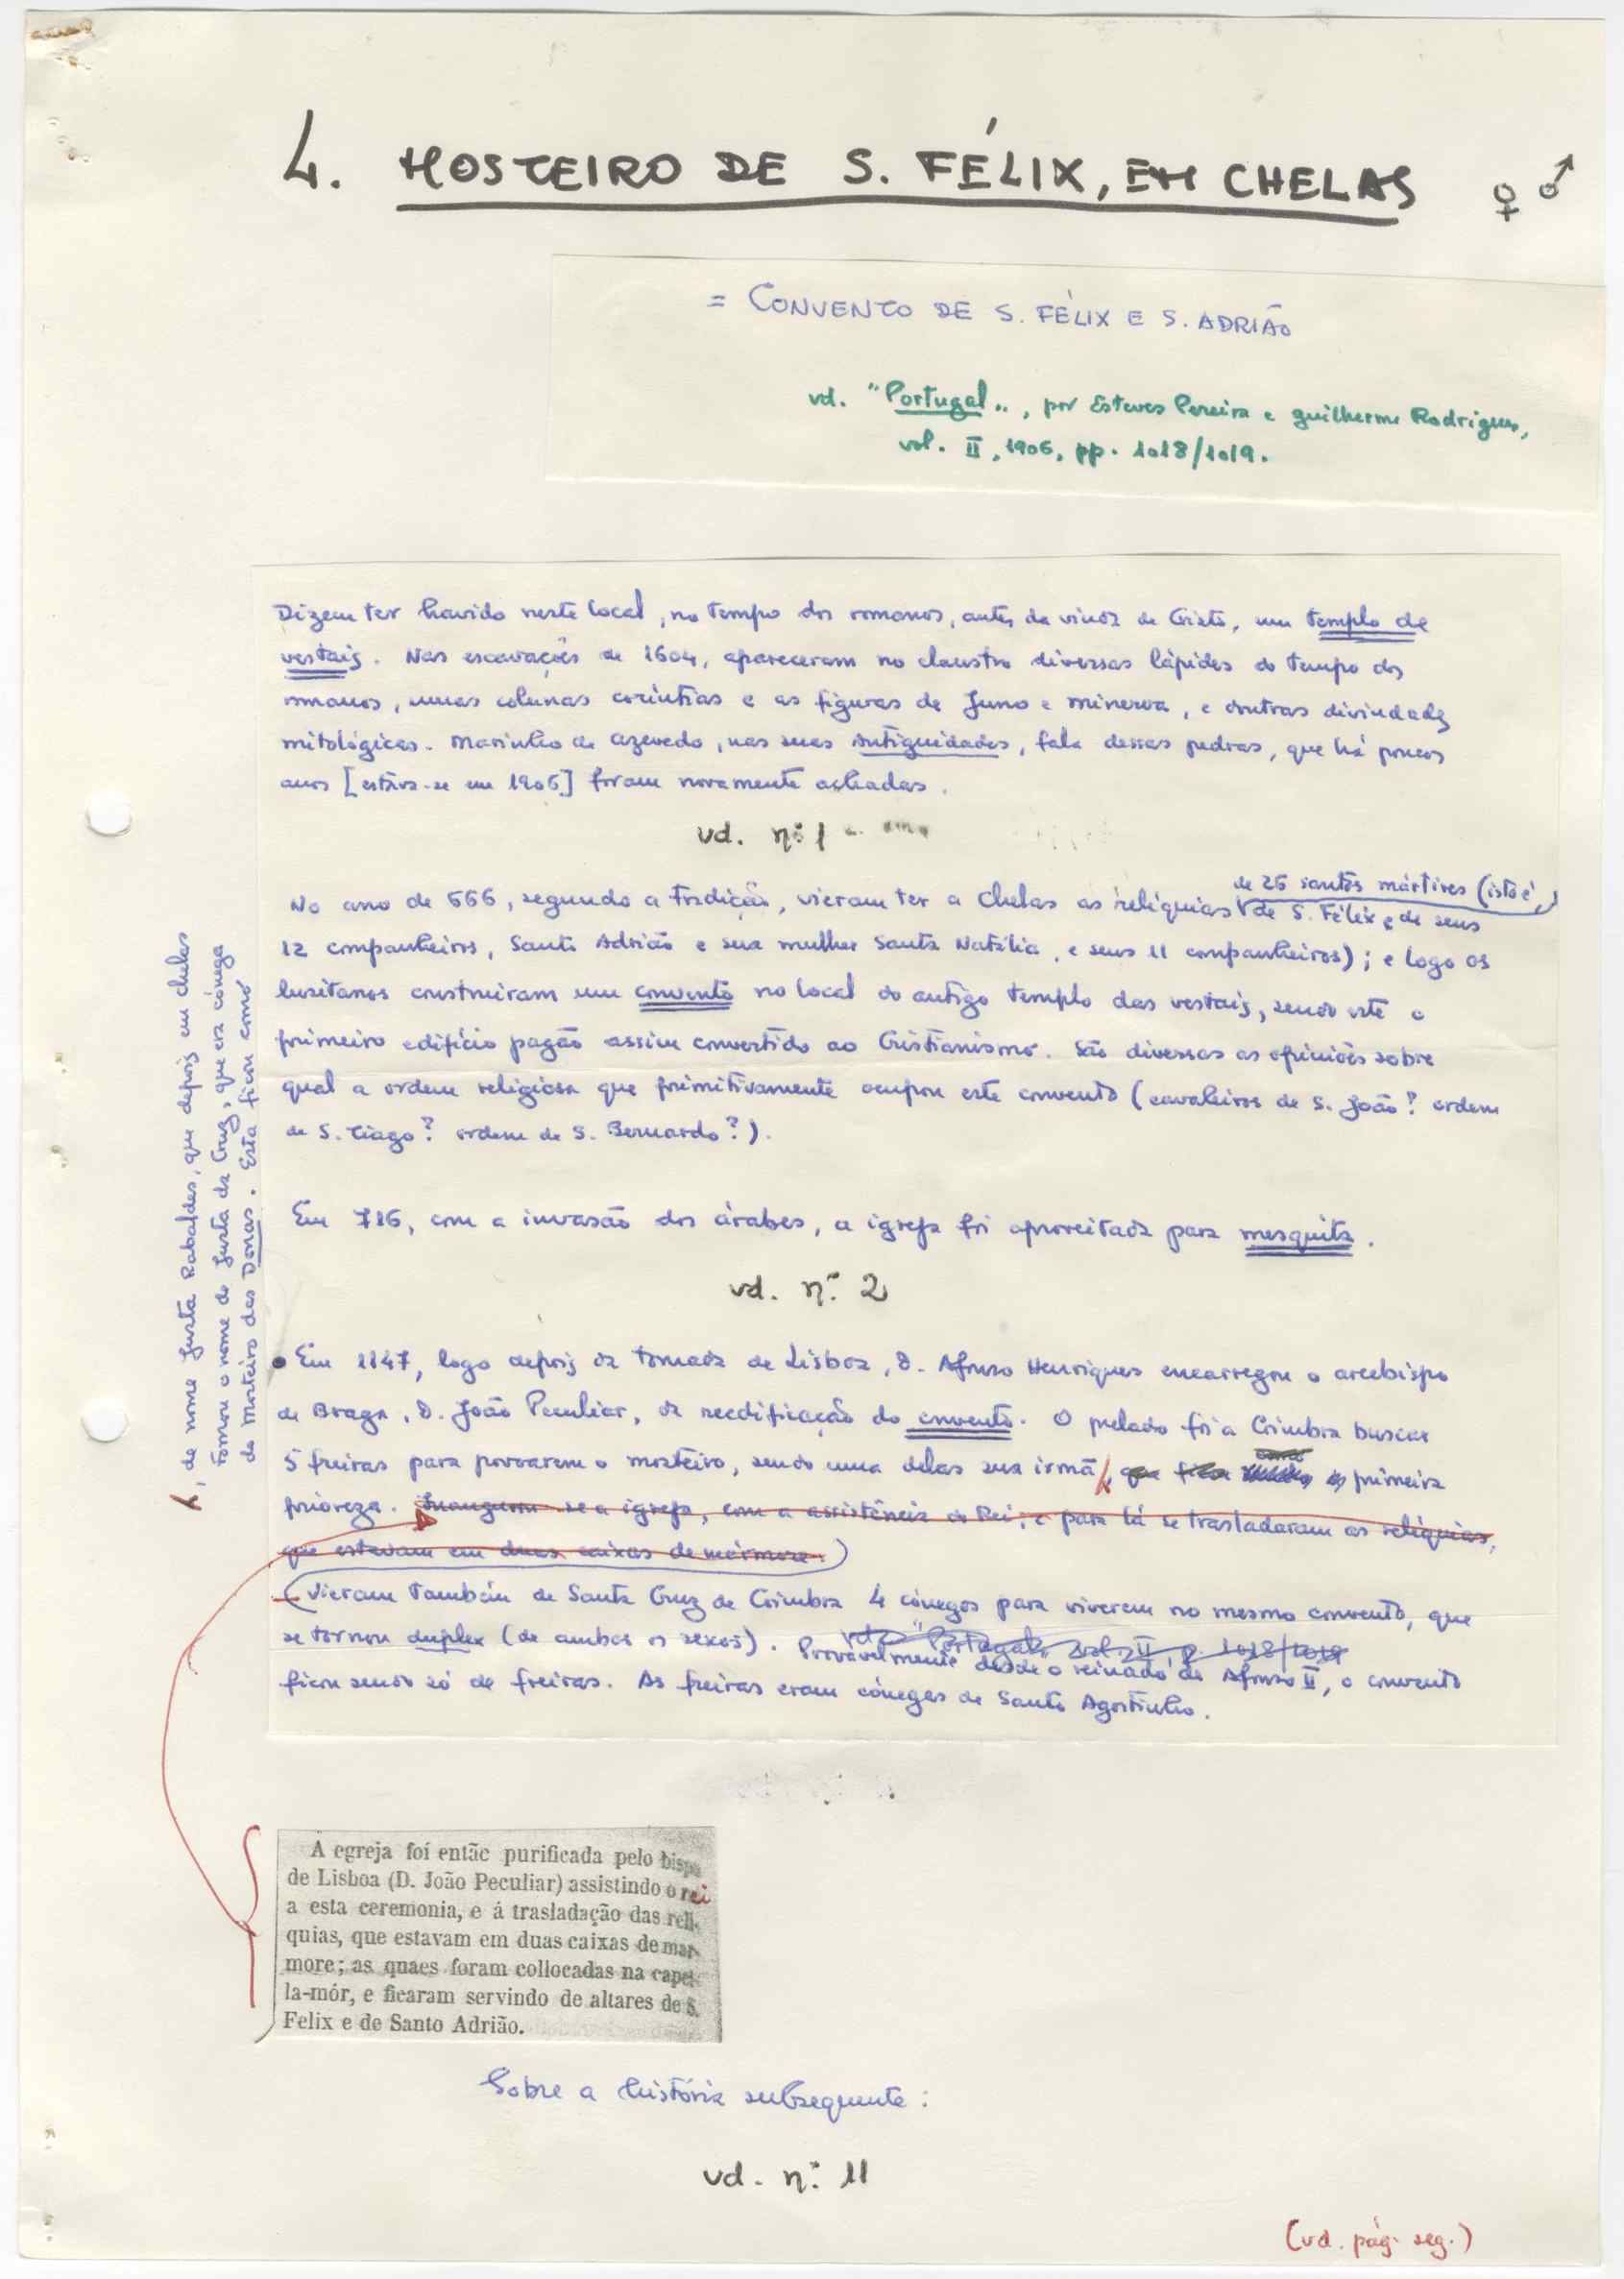 4. MOSTEIRO DE S. FÉLIX, EM CHELAS ♀ ♂
= CONVENTO DE S. FÉLIX E S. ADRIÃO
vd. "Portugal", por Esteves Pereira e Guilherme Rodrigues,
vol. II, 1906, pp. 1018/1019.
Dizem ter havido neste local, no tempo dos romanos, antes da vinda de Cristo, um templo de
vestais. Nas escavações de 1604, apareceram no claustro diversas lápides do tempo dos
romanos, umas colunas coríntias e as figuras de Juno e Minerva, e doutras divindades
mitológicas. Marinho de Azevedo, nas suas Antiguidades, fala dessas pedras, que há poucos
anos [estáva-se em 1906] foram novamente achadas.
vd. nº 1
de 26 santos mártires (isto é,
No ano de 666, segundo a tradição, vieram ter a Chelas as relíquias de S. Félix e de seus
12 companheiros, Santo Adrião e sua mulher Santa Natália, e seus 11 companheiros); e logo os
lusitanos construiram um convento no local do antigo templo das vestais, sendo este o
primeiro edifício pagão assim convertido ao Cristianismo. São diversas as opiniões sobre
qual a ordem religiosa que primitivamente ocupou este convento (cavaleiros de S. João? ordem
de S. Tiago? ordem de S. Bernardo?).
Em 716, com a invasão dos árabes, a igreja foi aproveitada para mesquita.
vd. nº 2
Em 1147, logo depois da tomada de Lisboa, D. Afonso Henriques encarregou o arcebispo
de Braga, D. João Peculiar, da reedificação do convento. O prelado foi a Coimbra buscar
5 freiras para povoarem o mosteiro, sendo uma delas sua irmã, que ficou primeira
prioreza. Inaugurou-se a igreja, com a assistência do Rei, e para lá se trasladaram as relíquias,
que estavam em duas caixas de mármore.
Vieram também de Santa Cruz de Coimbra 4 cónegos para viverem no mesmo convento, que
se tornou duplex (de ambos os sexos). vd. "Portugal", vol. II, p. 1018/1019
Provavelmente desde o reinado de Afonso II, o convento
ficou sendo só de freiras. As freiras eram cónegas de Santo Agostinho.
, de nome Justa Rabaldes, que depois em Chelas
tomou o nome de Justa da Cruz, que era cónega
do Mosteiro das Donas. Esta ficou como
A egreja foi então purificada pelo bispo
de Lisboa (D. João Peculiar) assistindo o rei
a esta ceremonia, e á trasladação das reli-
quias, que estavam em duas caixas de mar-
more; as quaes foram collocadas na capel-
la-mór, e ficaram servindo de altares de S.
Felix e de Santo Adrião.
Sobre a história subsequente:
vd. nº 11
(vd. pág. seg.)